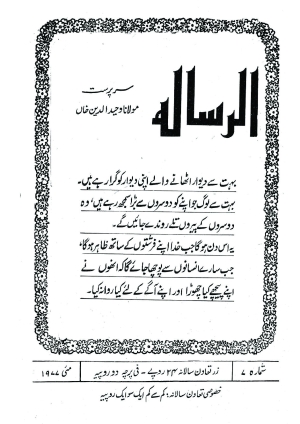 سرپرست
مولانا وحید الدین خاں
الرسالہ
بہت سے دیوار اٹھانے والے اپنی دیوار کو گرا رہے ہیں۔
بہت سے لوگ جو اپنے کو دوسروں سے بڑا سمجھ رہے ہیں، وہ
دوسروں کے پیروں تلے روندے جائیں گے۔
یہ اس دن ہوگا جب خدا اپنے فرشتوں کے ساتھ ظاہر ہوگا،
جب سارے انسانوں سے پوچھا جائے گا کہ انھوں نے
اپنے پیچھے کیا چھوڑا اور اپنے آگے کے لئے کیا روانہ کیا۔
شمارہ ۷
زر تعاون سالانہ ۲۴ روپے - فی پرچہ دو روپیہ
مئی ۱۹۷۷
خصوصی تعاون سالانہ: کم سے کم ایک سو ایک روپیہ